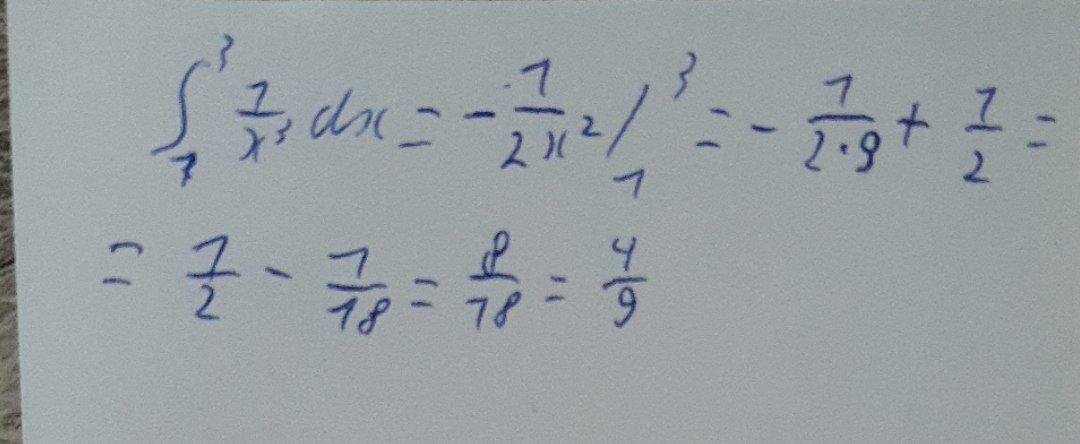 ∫₁³ 1/x³ dx = - 1/2x² /₁³ = - 1/2·9 + 1/2 =
= 1/2 - 1/18 = 8/18 = 4/9